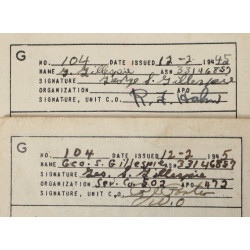 G
NO. 104 DATE ISSUED 12-2 1945
NAME G. Gillespie ASN 33146857
SIGNATURE George S. Gillespie
ORGANIZATION APO
SIGNATURE, UNIT C.O. R. F.
G
NO. 104 DATE ISSUED 12-2 1945
NAME Geo. S. Gillespie 33146857
SIGNATURE Geo. S. Gillespie
ORGANIZATION Ser. Co. 302 APO 472
SIGNATURE, UNIT C.O.